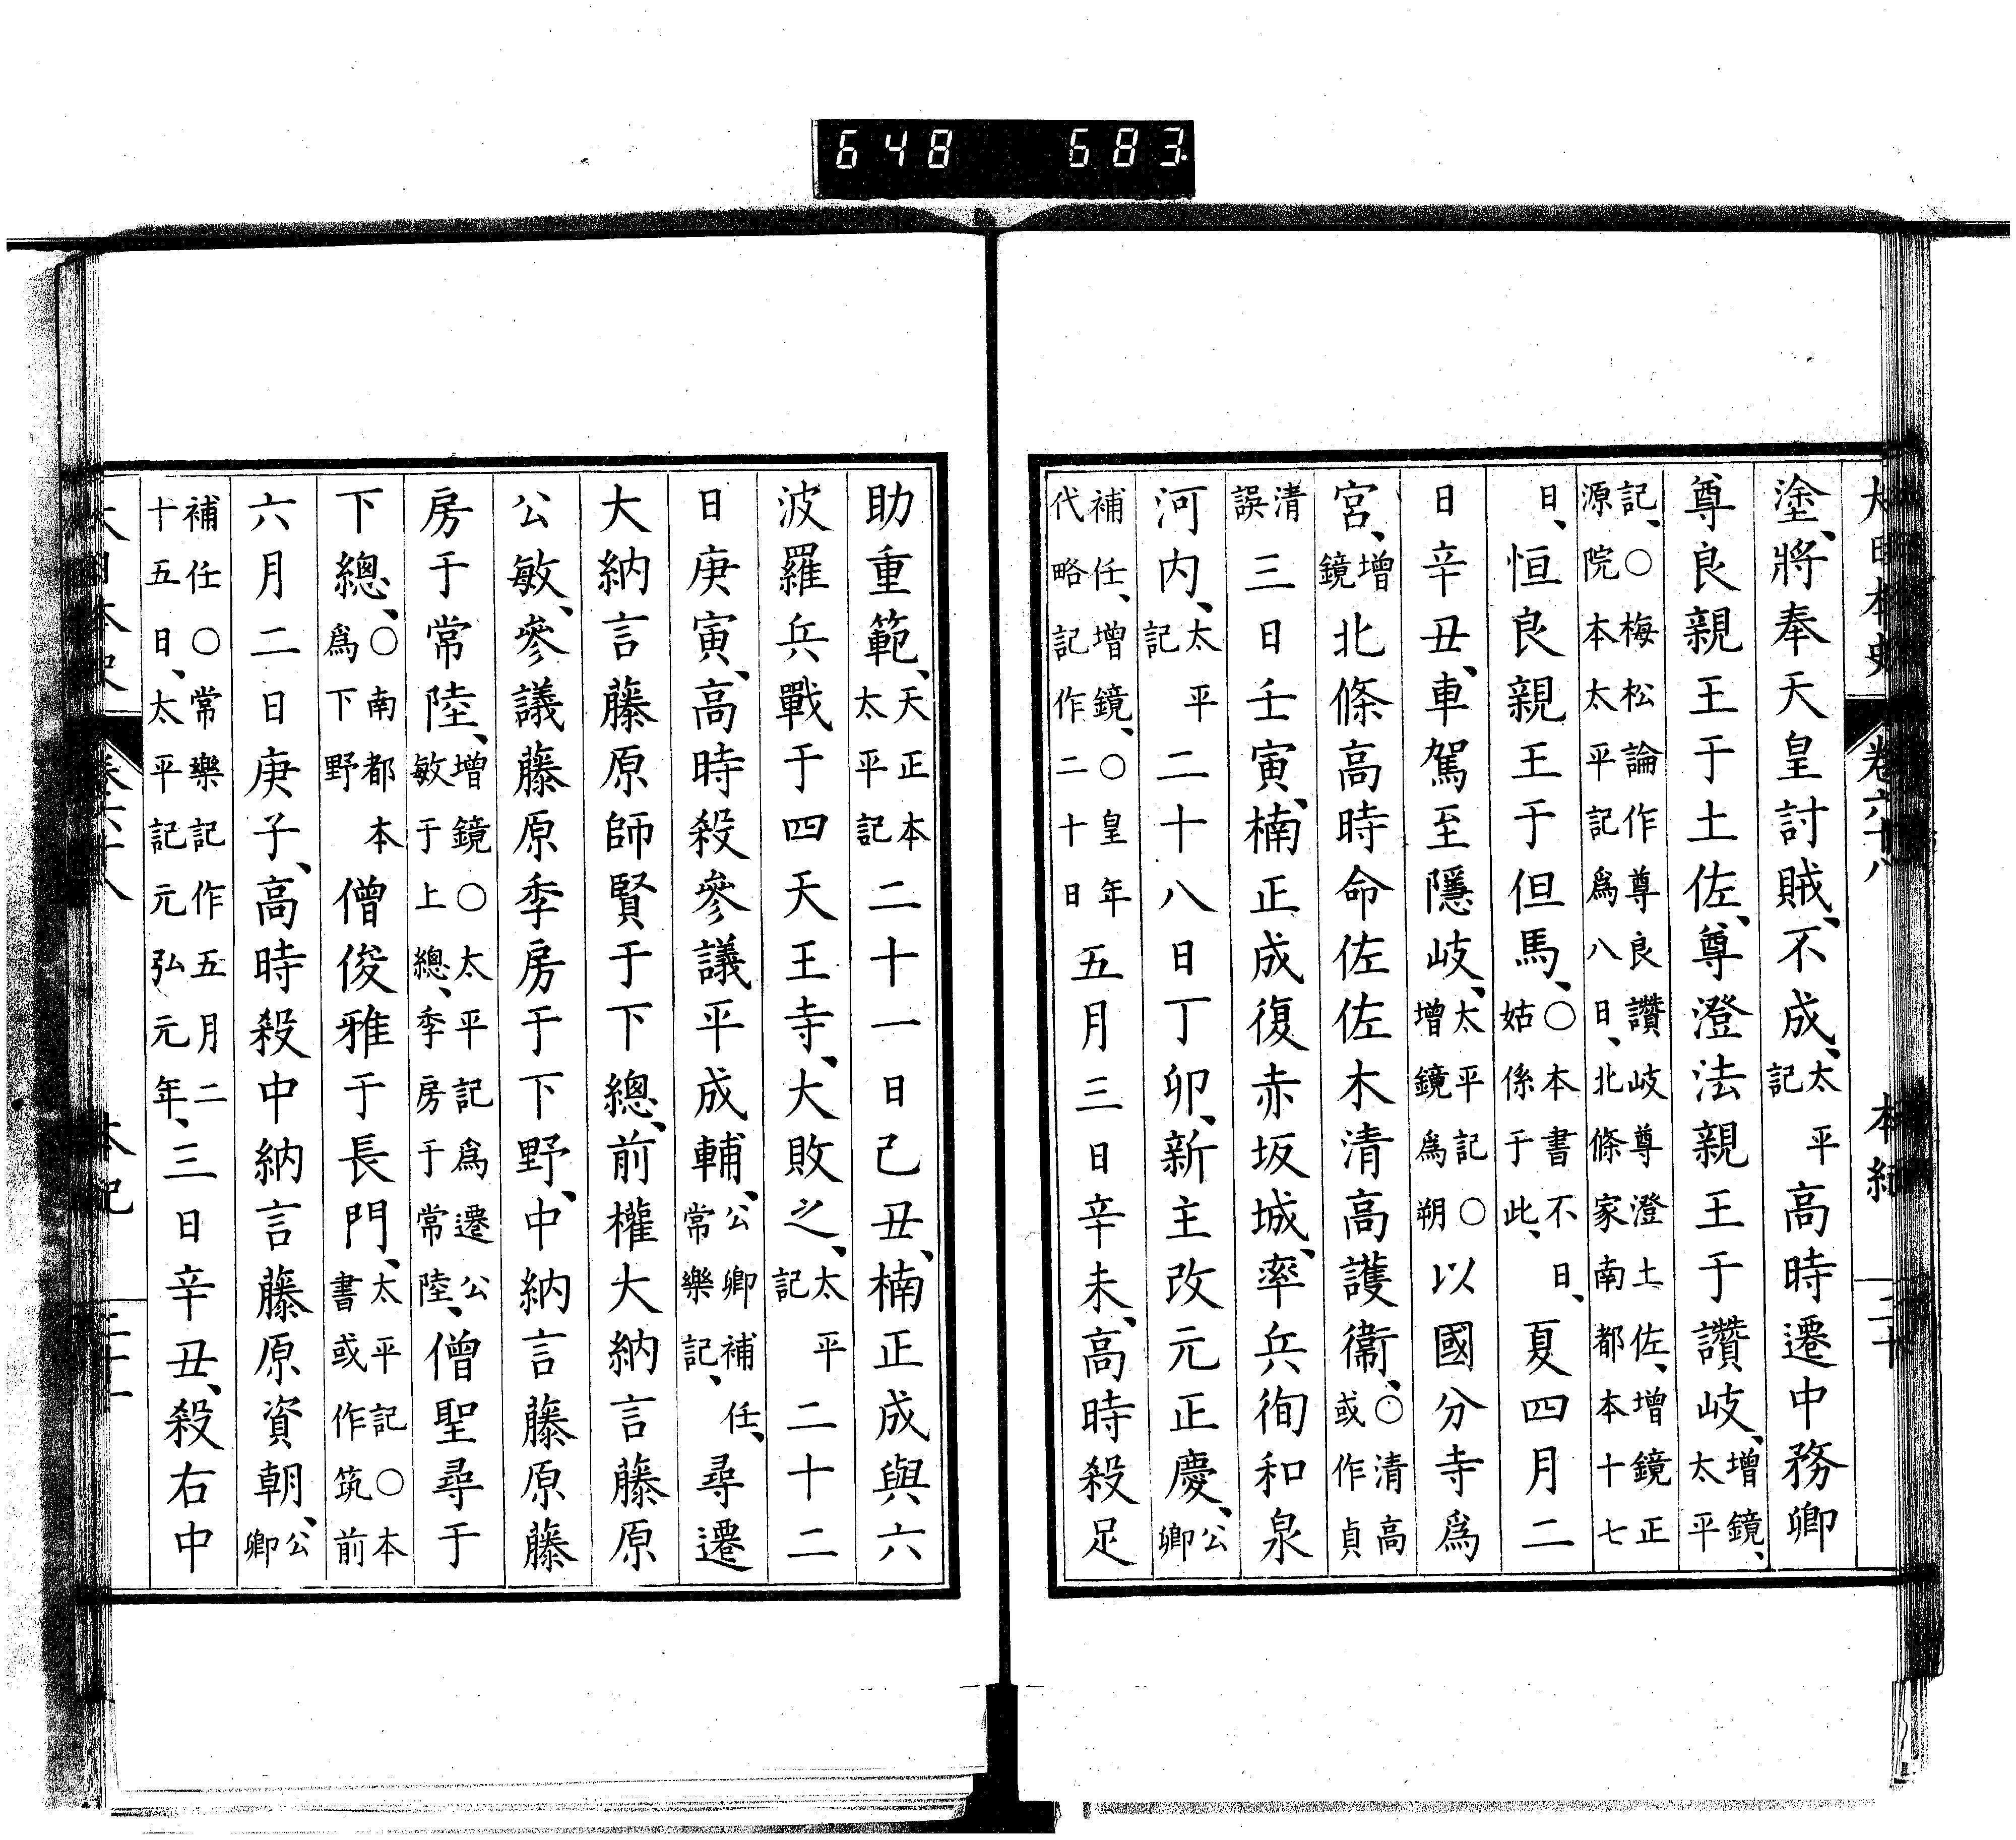 648 683
大日本史 卷六十八 本紀 二十
塗、將奉天皇討賊、不成、太平記高時遷中務卿
尊良親王于土佐、尊澄法親王于讚岐、增鏡、太平
記、○梅松論作尊良讚岐尊澄土佐、增鏡正源院本太平記爲八日、北條家南都本十七
日、恒良親王于但馬、○本書不日、姑係于此、夏四月二
日辛丑、車駕至隱岐、太平記○增鏡爲朔以國分寺爲
宮、增鏡北條高時命佐佐木清高護衞、○清高或作貞
清誤三日壬寅、楠正成復赤坂城、率兵徇和泉
河内、太平記二十八日丁卯、新主改元正慶、公卿
補任、增鏡、○皇年代略記作二十日五月三日辛未、高時殺足
助重範、天正本太平記二十一日己丑、楠正成與六
波羅兵戰于四天王寺、大敗之、太平記二十二
日庚寅、高時殺參議平成輔、公卿補任、常樂記、尋遷
大納言藤原師賢于下總、前權大納言藤原
公敏、參議藤原季房于下野、中納言藤原藤
房于常陸、增鏡○太平記爲遷公敏于上總、季房于常陸、僧聖尋于
下總、○南都本爲下野僧俊雅于長門、太平記○本書或作筑前
六月二日庚子、高時殺中納言藤原資朝、公卿
補任○常樂記作五月二十五日、太平記元弘元年、三日辛丑、殺右中
大日本史 卷六十八 本紀 二十一